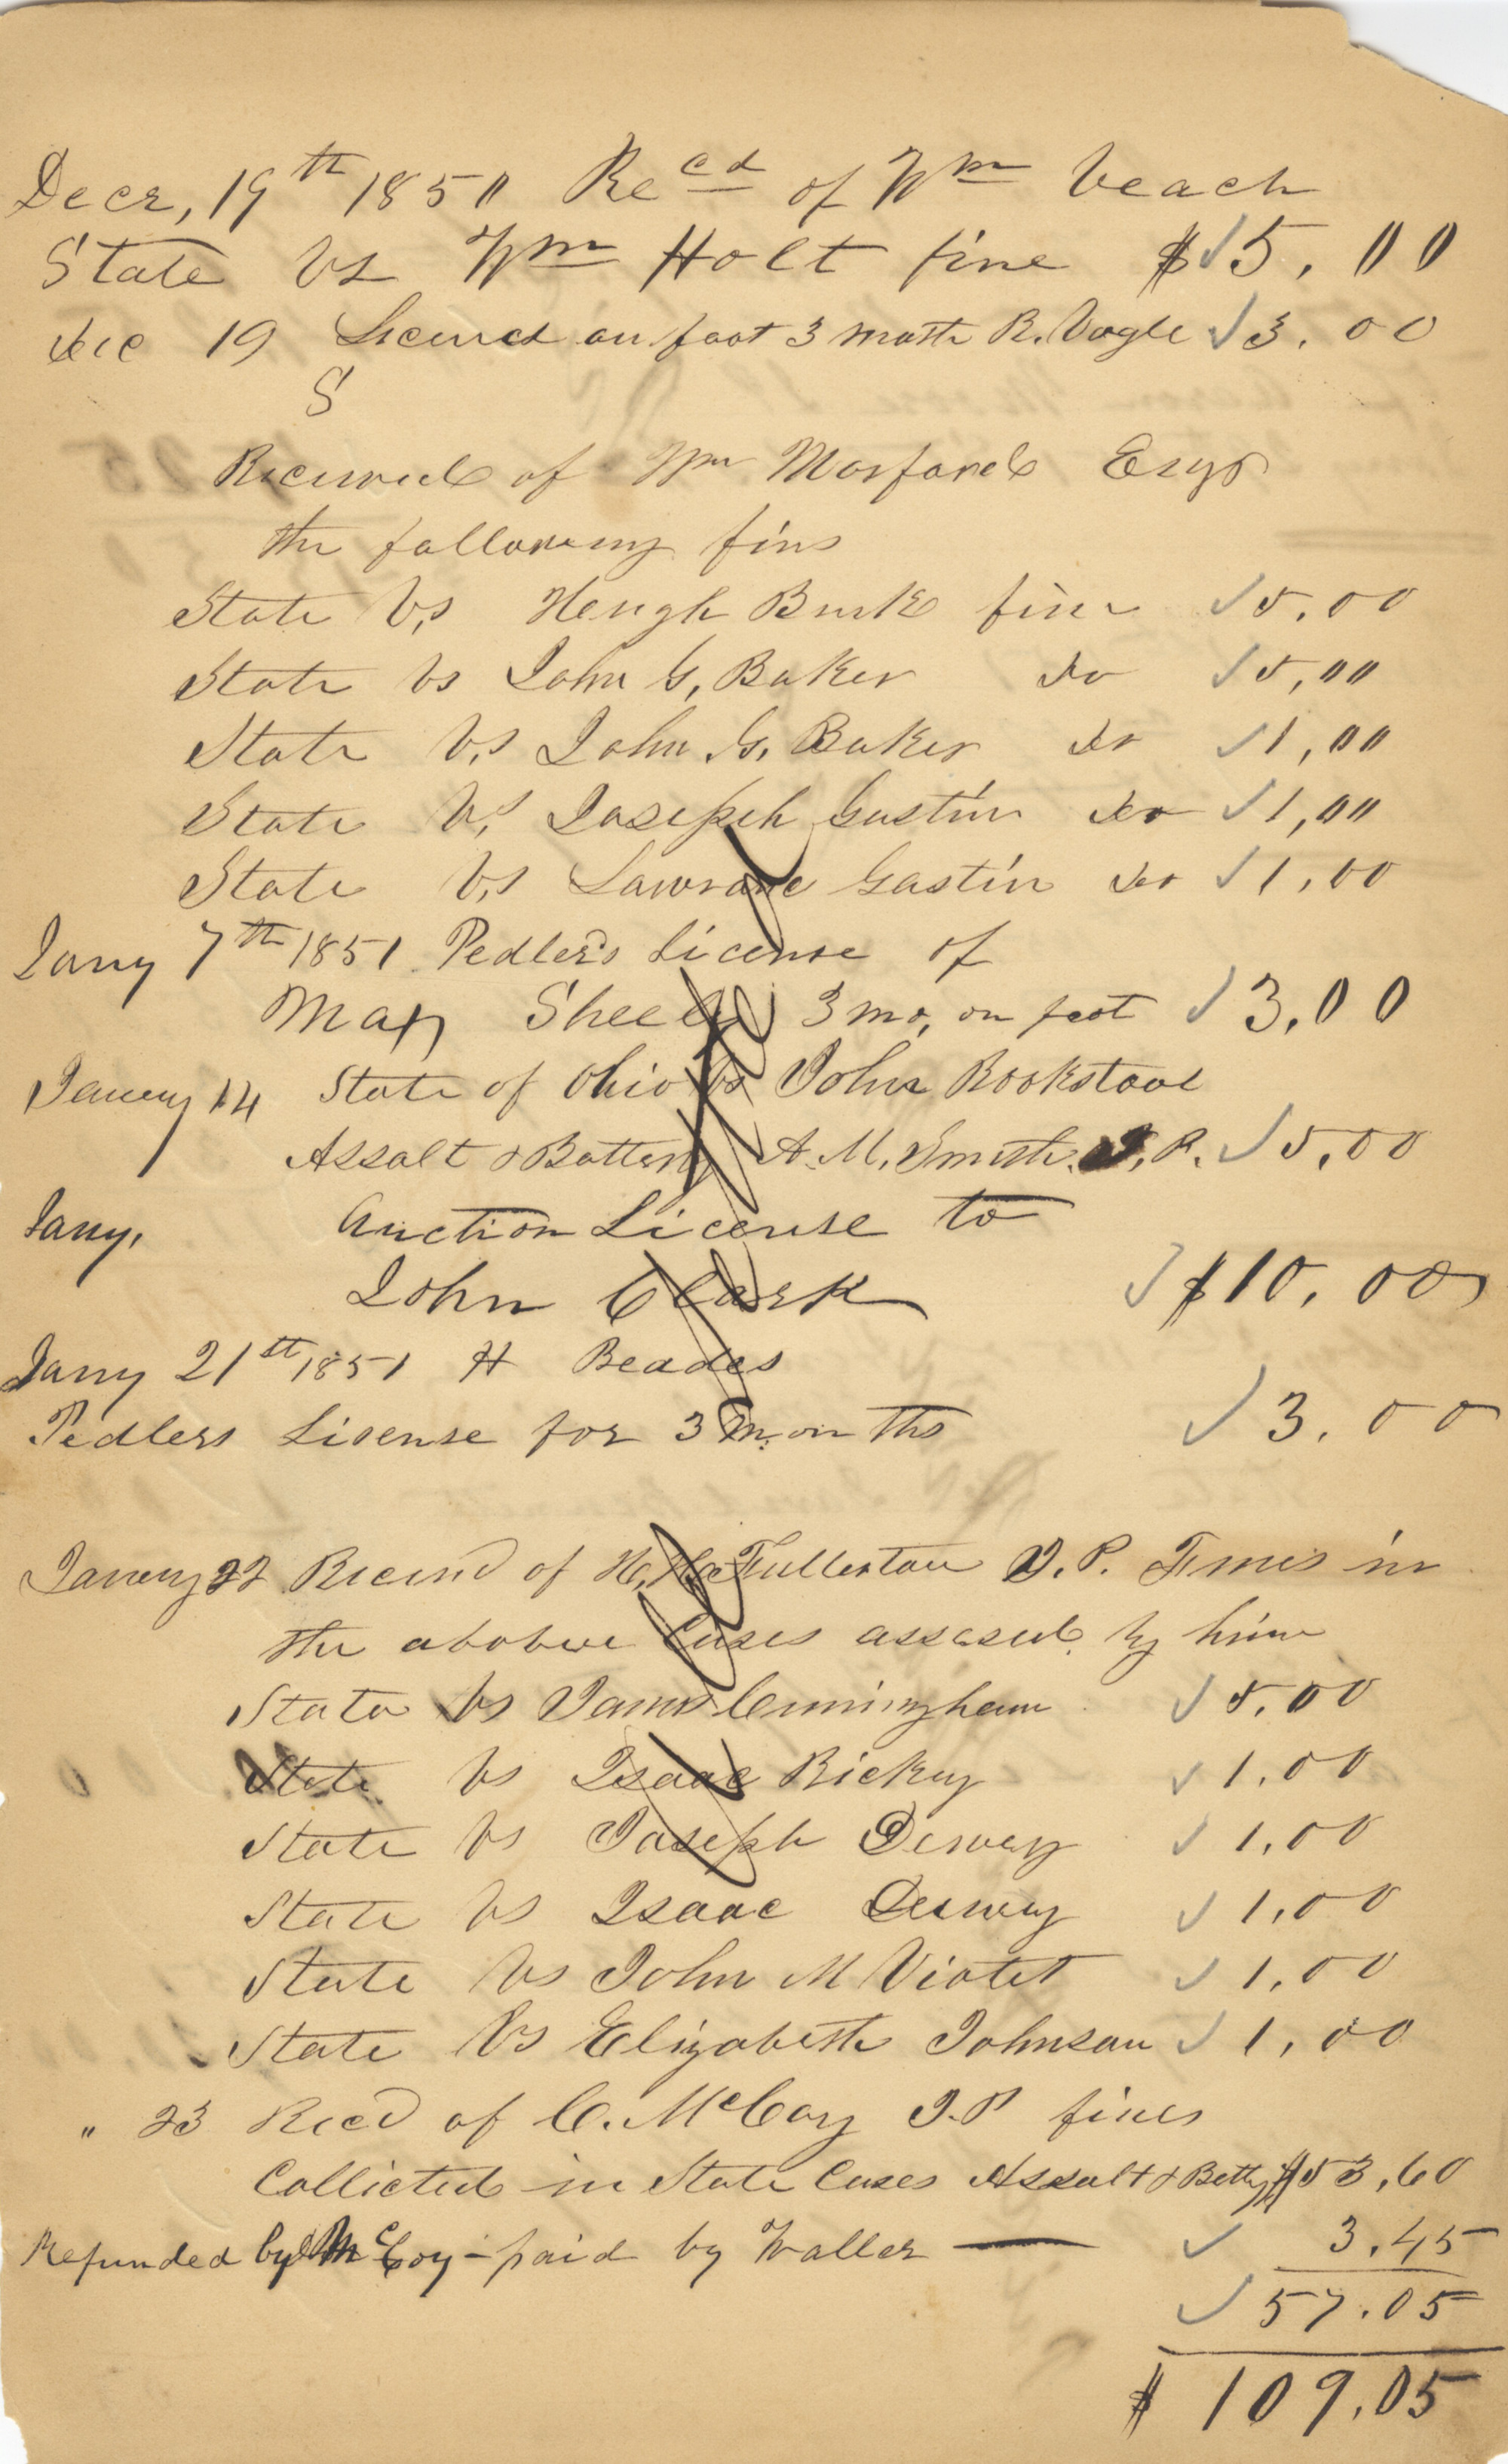 Decr, 19th 1850 Recd of Wm Veach
State Vs Wm Holt fine $5.00
Dec 19 Licened on foot 3 month R. Vogle 3.00
S
Received of Wm Morford Esqr
the following fins
State Vs Heugh Burk fine 5.00
State Vs John G, Baker do 5,00
State Vs John G, Baker do 1,00
State Vs Joseph Gustin do 1,00
State Vs Lawrance Gastin do 1.00
Jany 7th 1851 Pedler's License of
Max 3 mo, on foot 3,00
Janury 14 State of Ohio Vs John Bookstove
Assalt & Battery A. M. Smith. J. P. 5,00
Jany, Auction License to
John Clark $10,00
Jany 21st 1851 H Beades
Pedlers Lisense for 3 months 3.00
Janury 22 Received of H, Fullerton J. P. Fines in
the abobve Cases assased by him
State Vs James Cunningham 5.00
State Vs Isaac Rickey 1.00
State Vs Joseph Dewey 1,00
State Vs Isaac Dewey 1,00
State Vs John M Violet 1,00
State Vs Elizabeth Johnson 1,00
" 23 Recd of C. McCoy J.P fines
Collicted in State Cases Assalt & Betty $53,60
Refunded by McCoy - paid by Waller — 3.45
57.05
$ 109.05